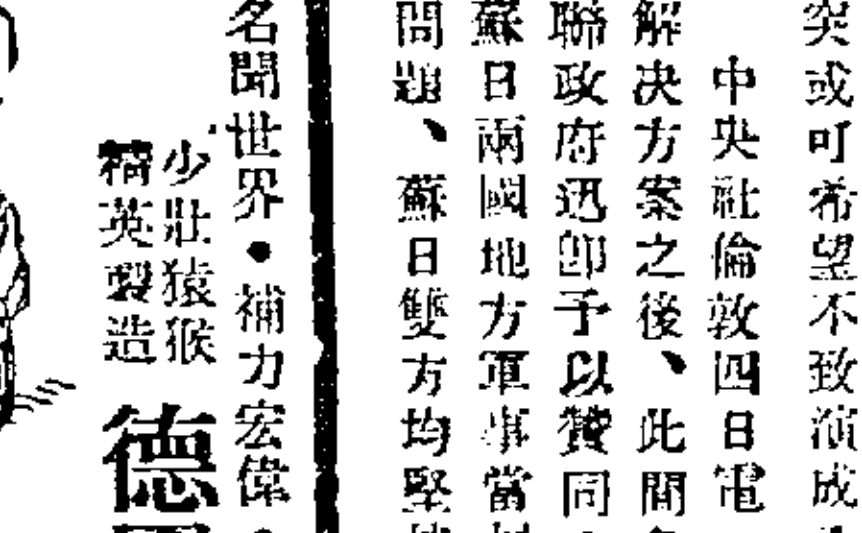 突或可希望不致演成
中央社倫敦四日電
解决方案之後、此間
聯政府迅卽予以贊同
蘇日兩國地方軍事當
問題、蘇日雙方均堅
名聞世界●補力宏偉
少壯猿猴
精英製造
德